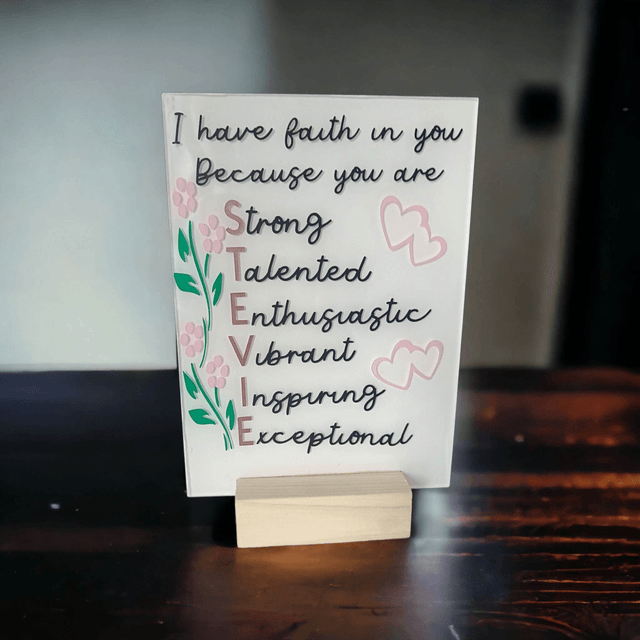 I have faith in you
Because you are
Strong
Talented
Enthusiastic
Vibrant
Inspiring
Exceptional